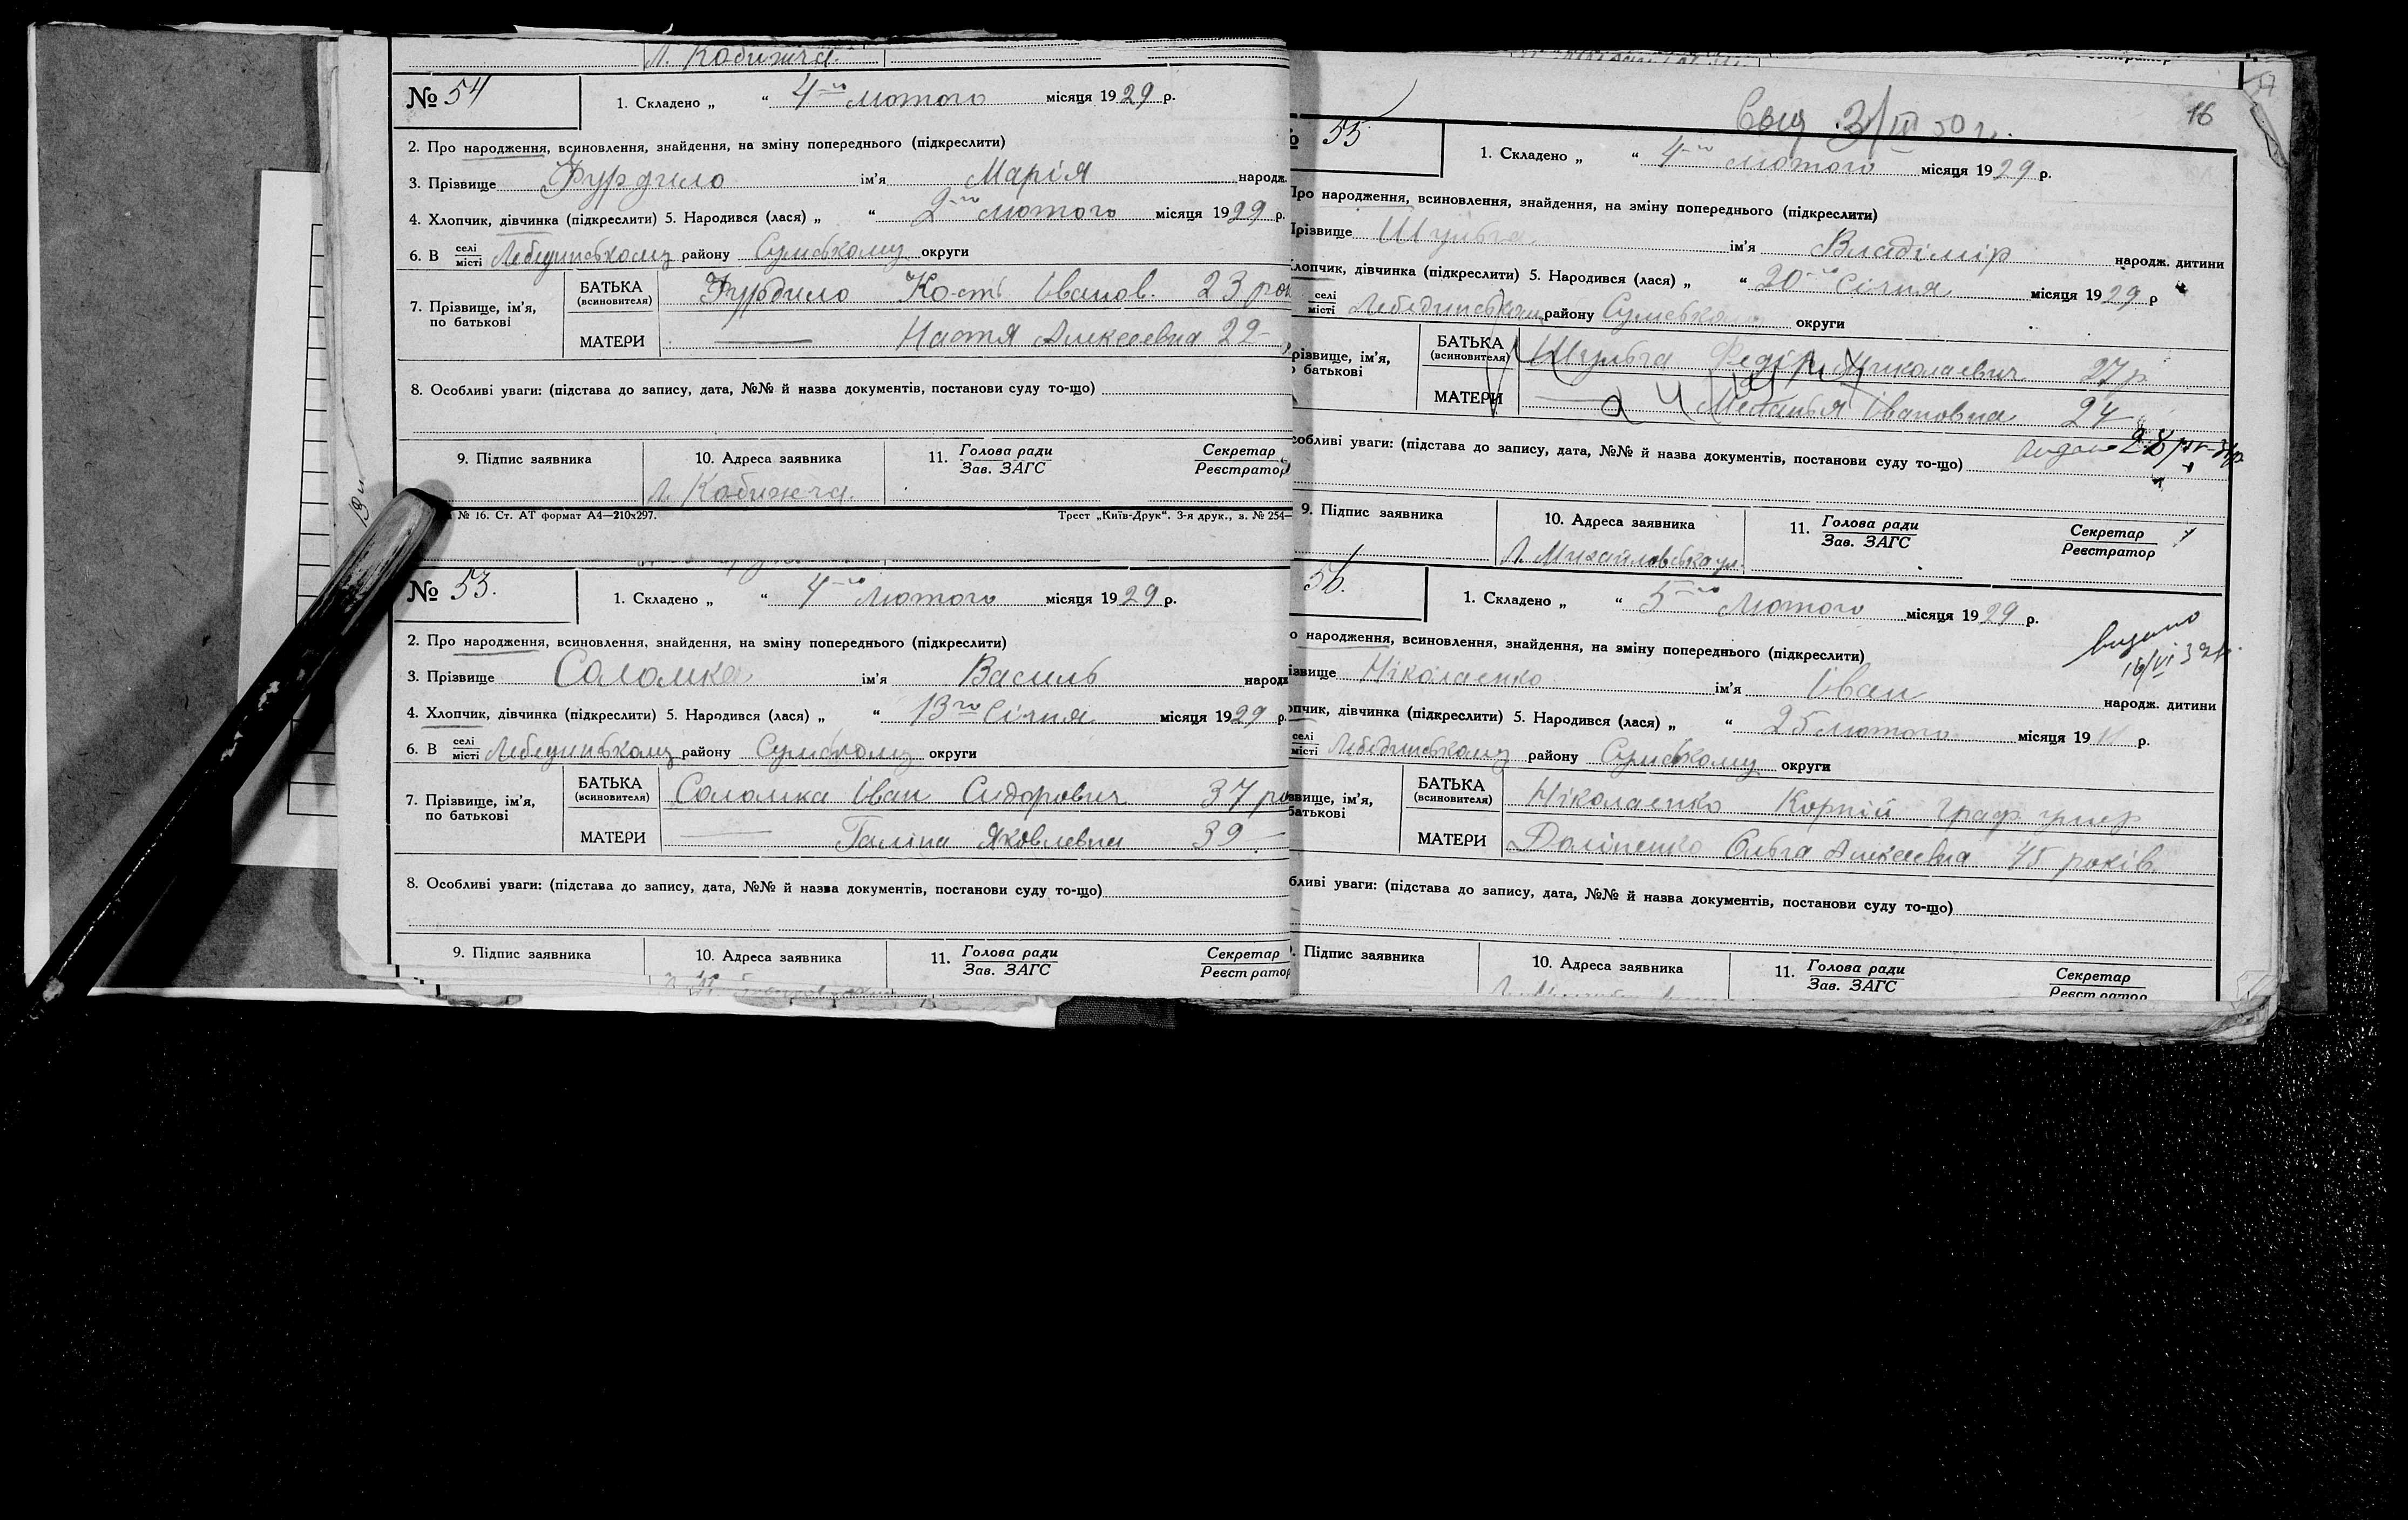 Л. Кобижча.
№ 54
1. Складено „ “ 4-го лютого місяця 1929 р.
2. Про народження, всиновлення, знайдення, на зміну попереднього (підкреслити)
3. Прізвище Фурдило ім'я Марія народж.
4. Хлопчик, дівчинка (підкреслити) 5. Народився (лася) „ “ 2-го лютого місяця 1929 р.
6. В селі місті Лебединському району Сумському округи
7. Прізвище, ім'я, по батькові
БАТЬКА (всиновителя) Фурдило Кость Іванов. 23 рок
МАТЕРИ — Настя Алексеевна 22 —
8. Особливі уваги: (підстава до запису, дата, №№ й назва документів, постанови суду то-що)
9. Підпис заявника
10. Адреса заявника
Л. Кобижча.
11. Голова ради Зав. ЗАГС
Секретар Реєстратор
№ 16. Ст. АТ формат А4—210x297.
Трест „Київ-Друк“. 3-я друк., з. № 254—
№ 53.
1. Складено „ “ 4-го Лютого місяця 1929 р.
2. Про народження, всиновлення, знайдення, на зміну попереднього (підкреслити)
3. Прізвище Соломка ім'я Василь народж
4. Хлопчик, дівчинка (підкреслити) 5. Народився (лася) „ “ 13го Січня місяця 1929 р.
6. В селі місті Лебединському району Сумському округи
7. Прізвище, ім'я, по батькові
БАТЬКА (всиновителя) Соломка Іван Сидорович 37 ро
МАТЕРИ — Галина Яковлевна 39 —
8. Особливі уваги: (підстава до запису, дата, №№ й назва документів, постанови суду то-що)
9. Підпис заявника
10. Адреса заявника
11. Голова ради Зав. ЗАГС
Секретар Реєстратор
16
55
1. Складено „ “ 4-го лютого місяця 1929 р.
Про народження, всиновлення, знайдення, на зміну попереднього (підкреслити)
Прізвище Шульга ім'я Владімір народж. дитини
Хлопчик, дівчинка (підкреслити) 5. Народився (лася) „ “ 20-го Січня місяця 1929 р
селі місті Лебединському району Сумському округи
різвище, ім'я, о батькові
БАТЬКА (всиновителя) Шульга Федір Миколаевич 27 р
МАТЕРИ — Меланья Івановна 24
собливі уваги: (підстава до запису, дата, №№ й назва документів, постанови суду то-що) видано
9. Підпис заявника
10. Адреса заявника
Л. Михайловська ул.
11. Голова ради Зав. ЗАГС
Секретар Реєстратор
56.
1. Складено „ “ 5-го Лютого місяця 1929 р.
видано
о народження, всиновлення, знайдення, на зміну попереднього (підкреслити)
ізвище Ніколаенко ім'я Іван народж. дитини
опчик, дівчинка (підкреслити) 5. Народився (лася) „ “ 25 лютого місяця 1911 р.
селі місті Лебединському району Сумському округи
звище, ім'я, батькові
БАТЬКА (всиновителя) Ніколаенко Корній
МАТЕРИ Ольга Алексеевна 45 років.
бливі уваги: (підстава до запису, дата, №№ й назва документів, постанови суду то-що)
. Підпис заявника
10. Адреса заявника
11. Голова ради Зав. ЗАГС
Секретар Реєстратор